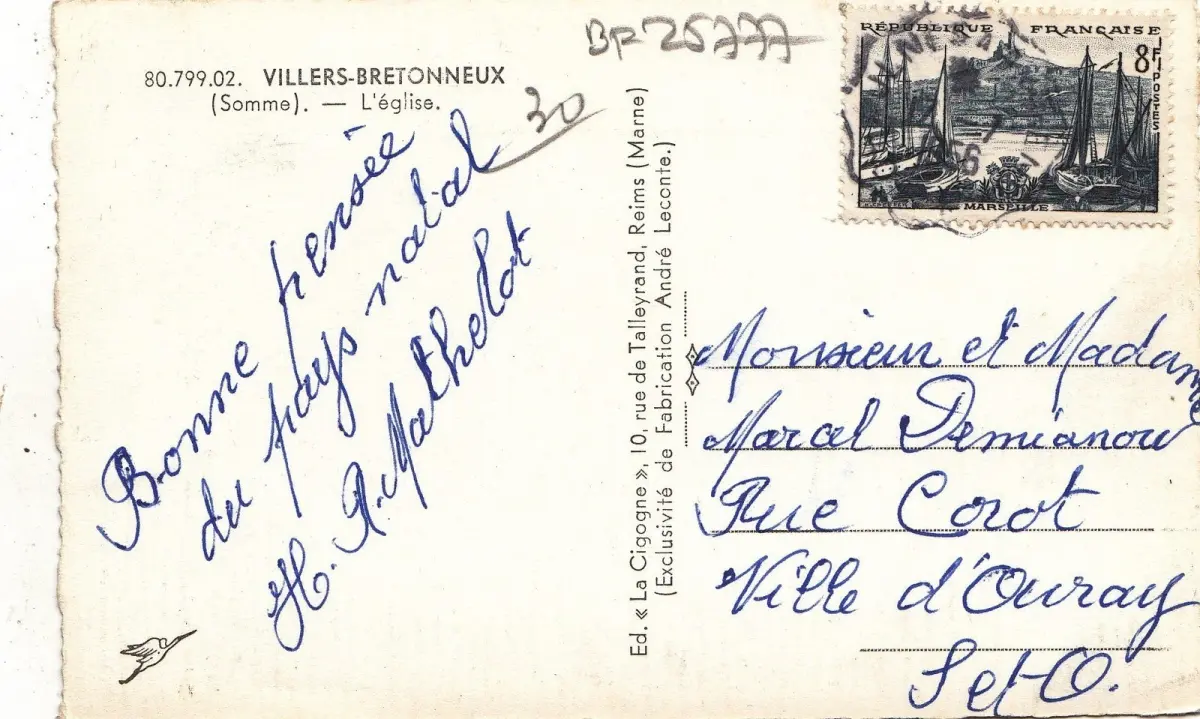 80.799.02. VILLERS-BRETONNEUX
(Somme). — L'église.
BF 25777
30
Bonne pensée
du pays natal
H. R. Mathelot
Ed. « La Cigogne », 10, rue de Talleyrand, Reims (Marne)
(Exclusivité de Fabrication André Leconte.)
RÉPUBLIQUE FRANÇAISE
8F
POSTES
MARSEILLE
Monsieur et Madame
Marcel Demianow
Rue Corot
Ville d'Ouray
S et O.